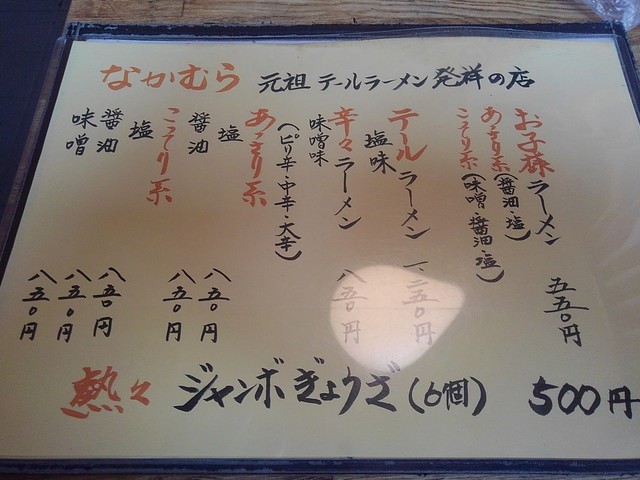 なかむら 元祖 テールラーメン発祥の店
お子様ラーメン 五五〇円
あっさり系(醤油・塩)
こってり系(味噌・醤油・塩)
テールラーメン 一、二五〇円
塩味
辛々ラーメン 八五〇円
味噌味
(ピリ辛・中辛・大辛)
あっさり系
塩 八五〇円
醤油 八五〇円
こってり系
塩 八五〇円
醤油 八五〇円
味噌 八五〇円
熱々 ジャンボぎょうざ(6個) 500円